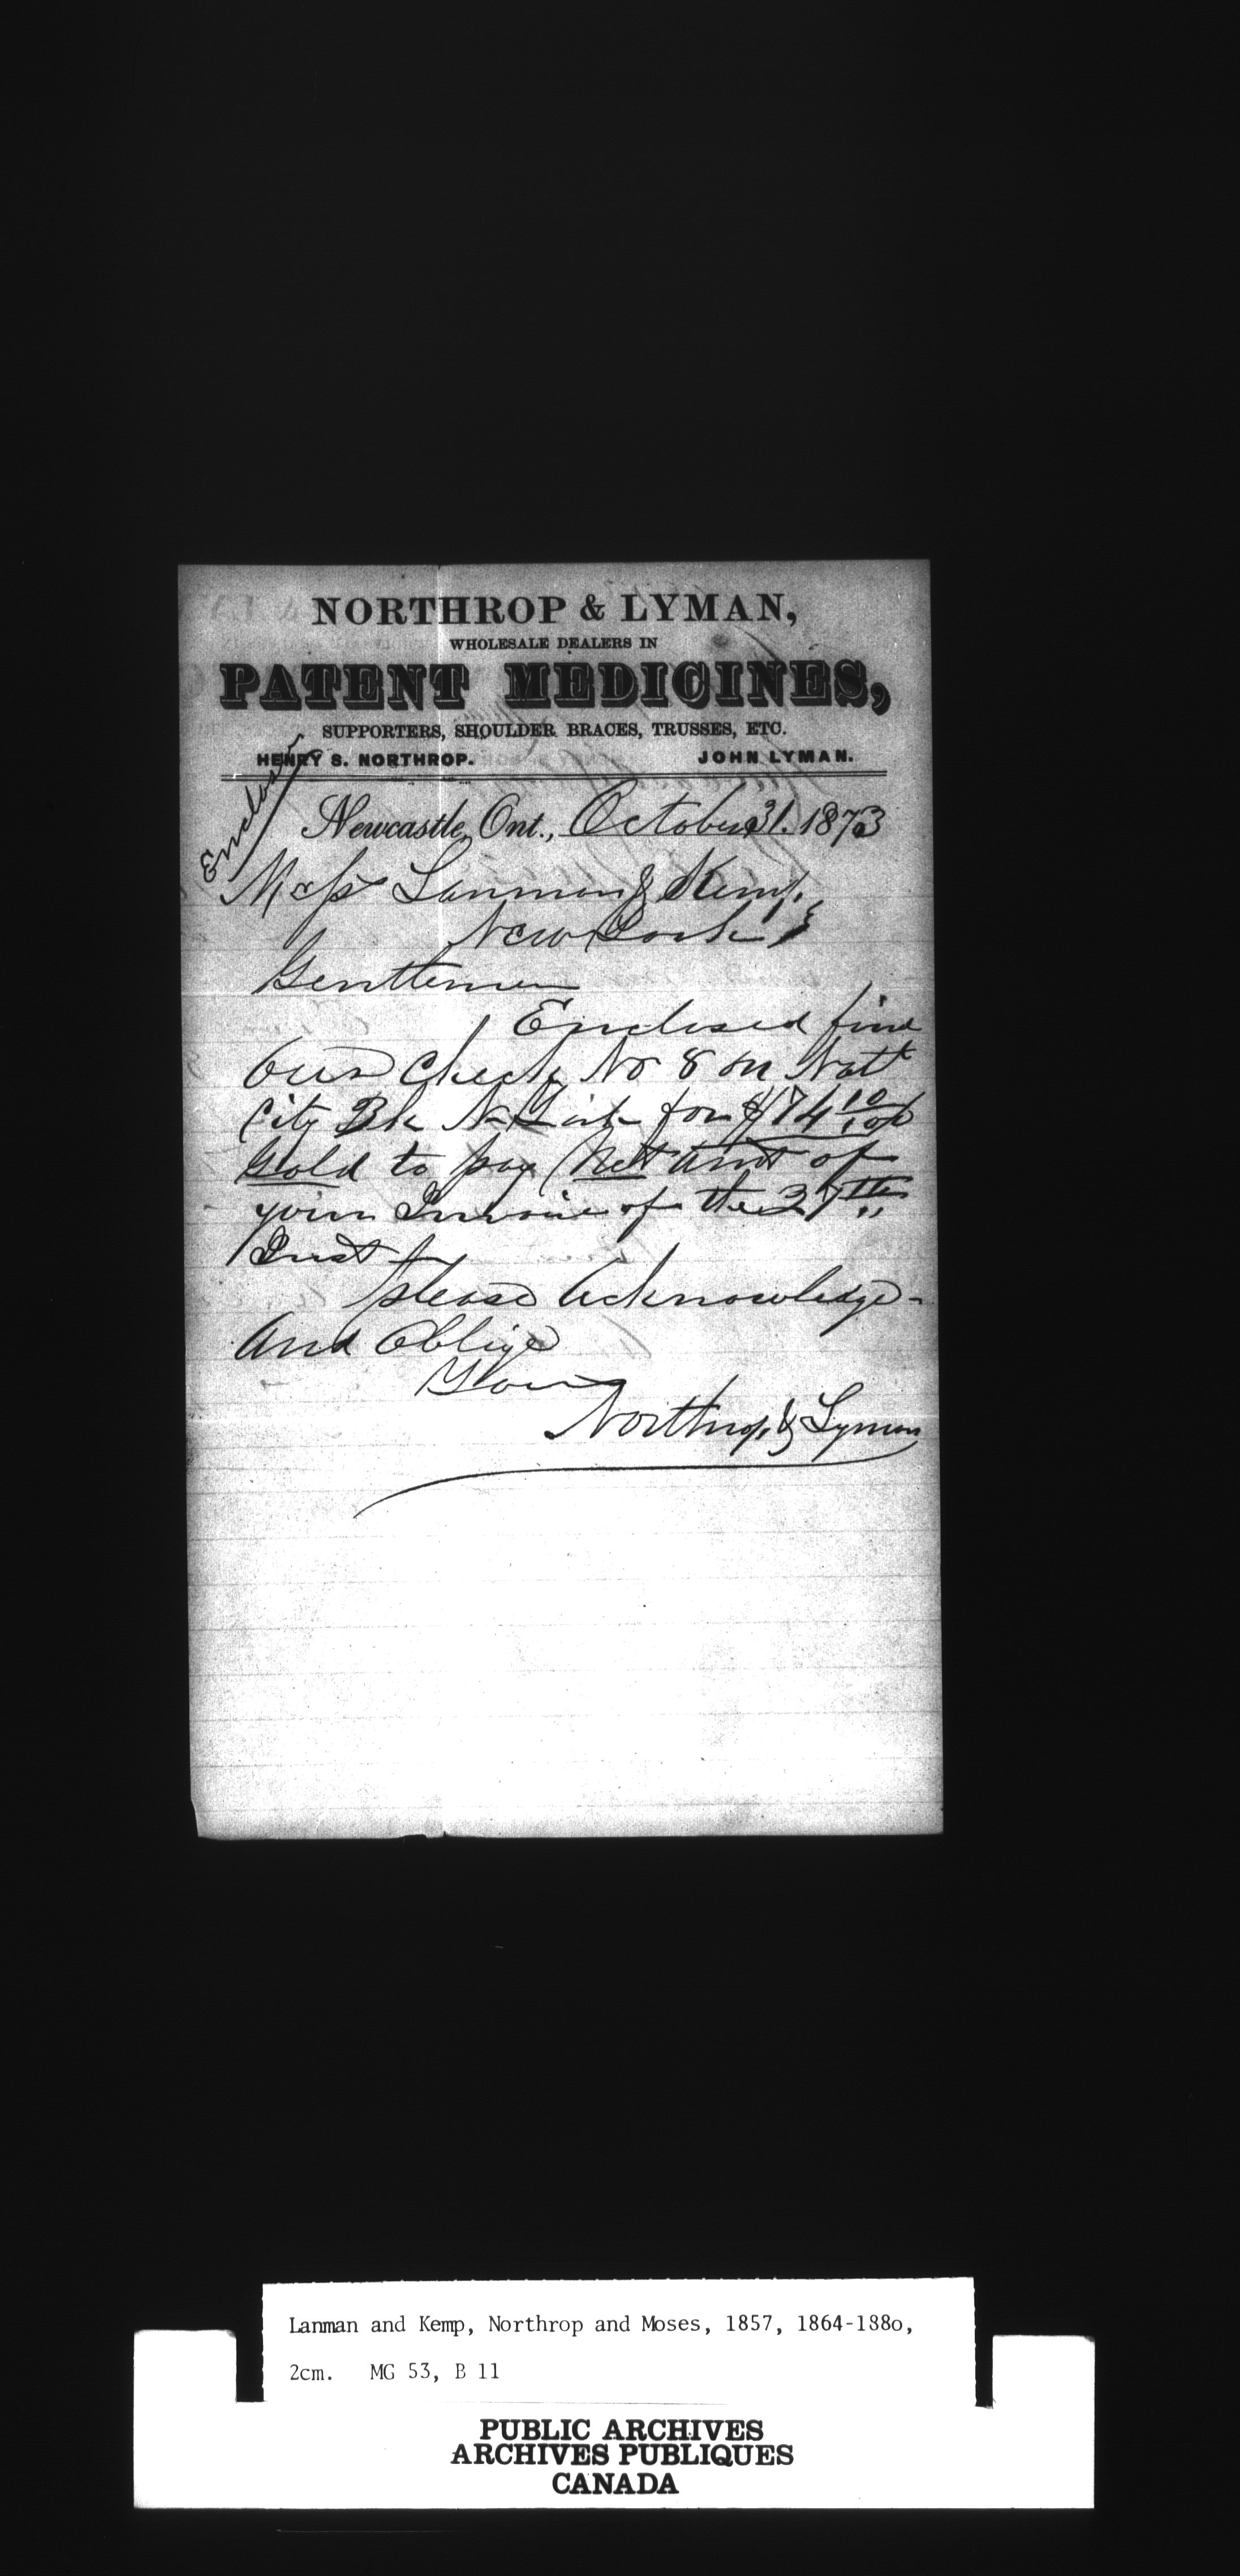 NORTHROP & LYMAN,
WHOLESALE DEALERS IN
PATENT MEDICINES,
SUPPORTERS, SHOULDER BRACES, TRUSSES, ETC.
HENRY S. NORTHROP. JOHN LYMAN.
Newcastle, Ont., October 31. 1873
Messrs Lanman & Kemp,
New York
Gentlemen
Enclosed find
Our Check No 8 on Natl
City Bk N York for $174 10/100
Gold to pay Net amt of
your Invoice of the 27th
Inst
please Acknowledge
And Oblige
Yours
Northrop & Lyman
Lanman and Kemp, Northrop and Moses, 1857, 1864-188o,
2cm. MG 53, B 11
PUBLIC ARCHIVES
ARCHIVES PUBLIQUES
CANADA